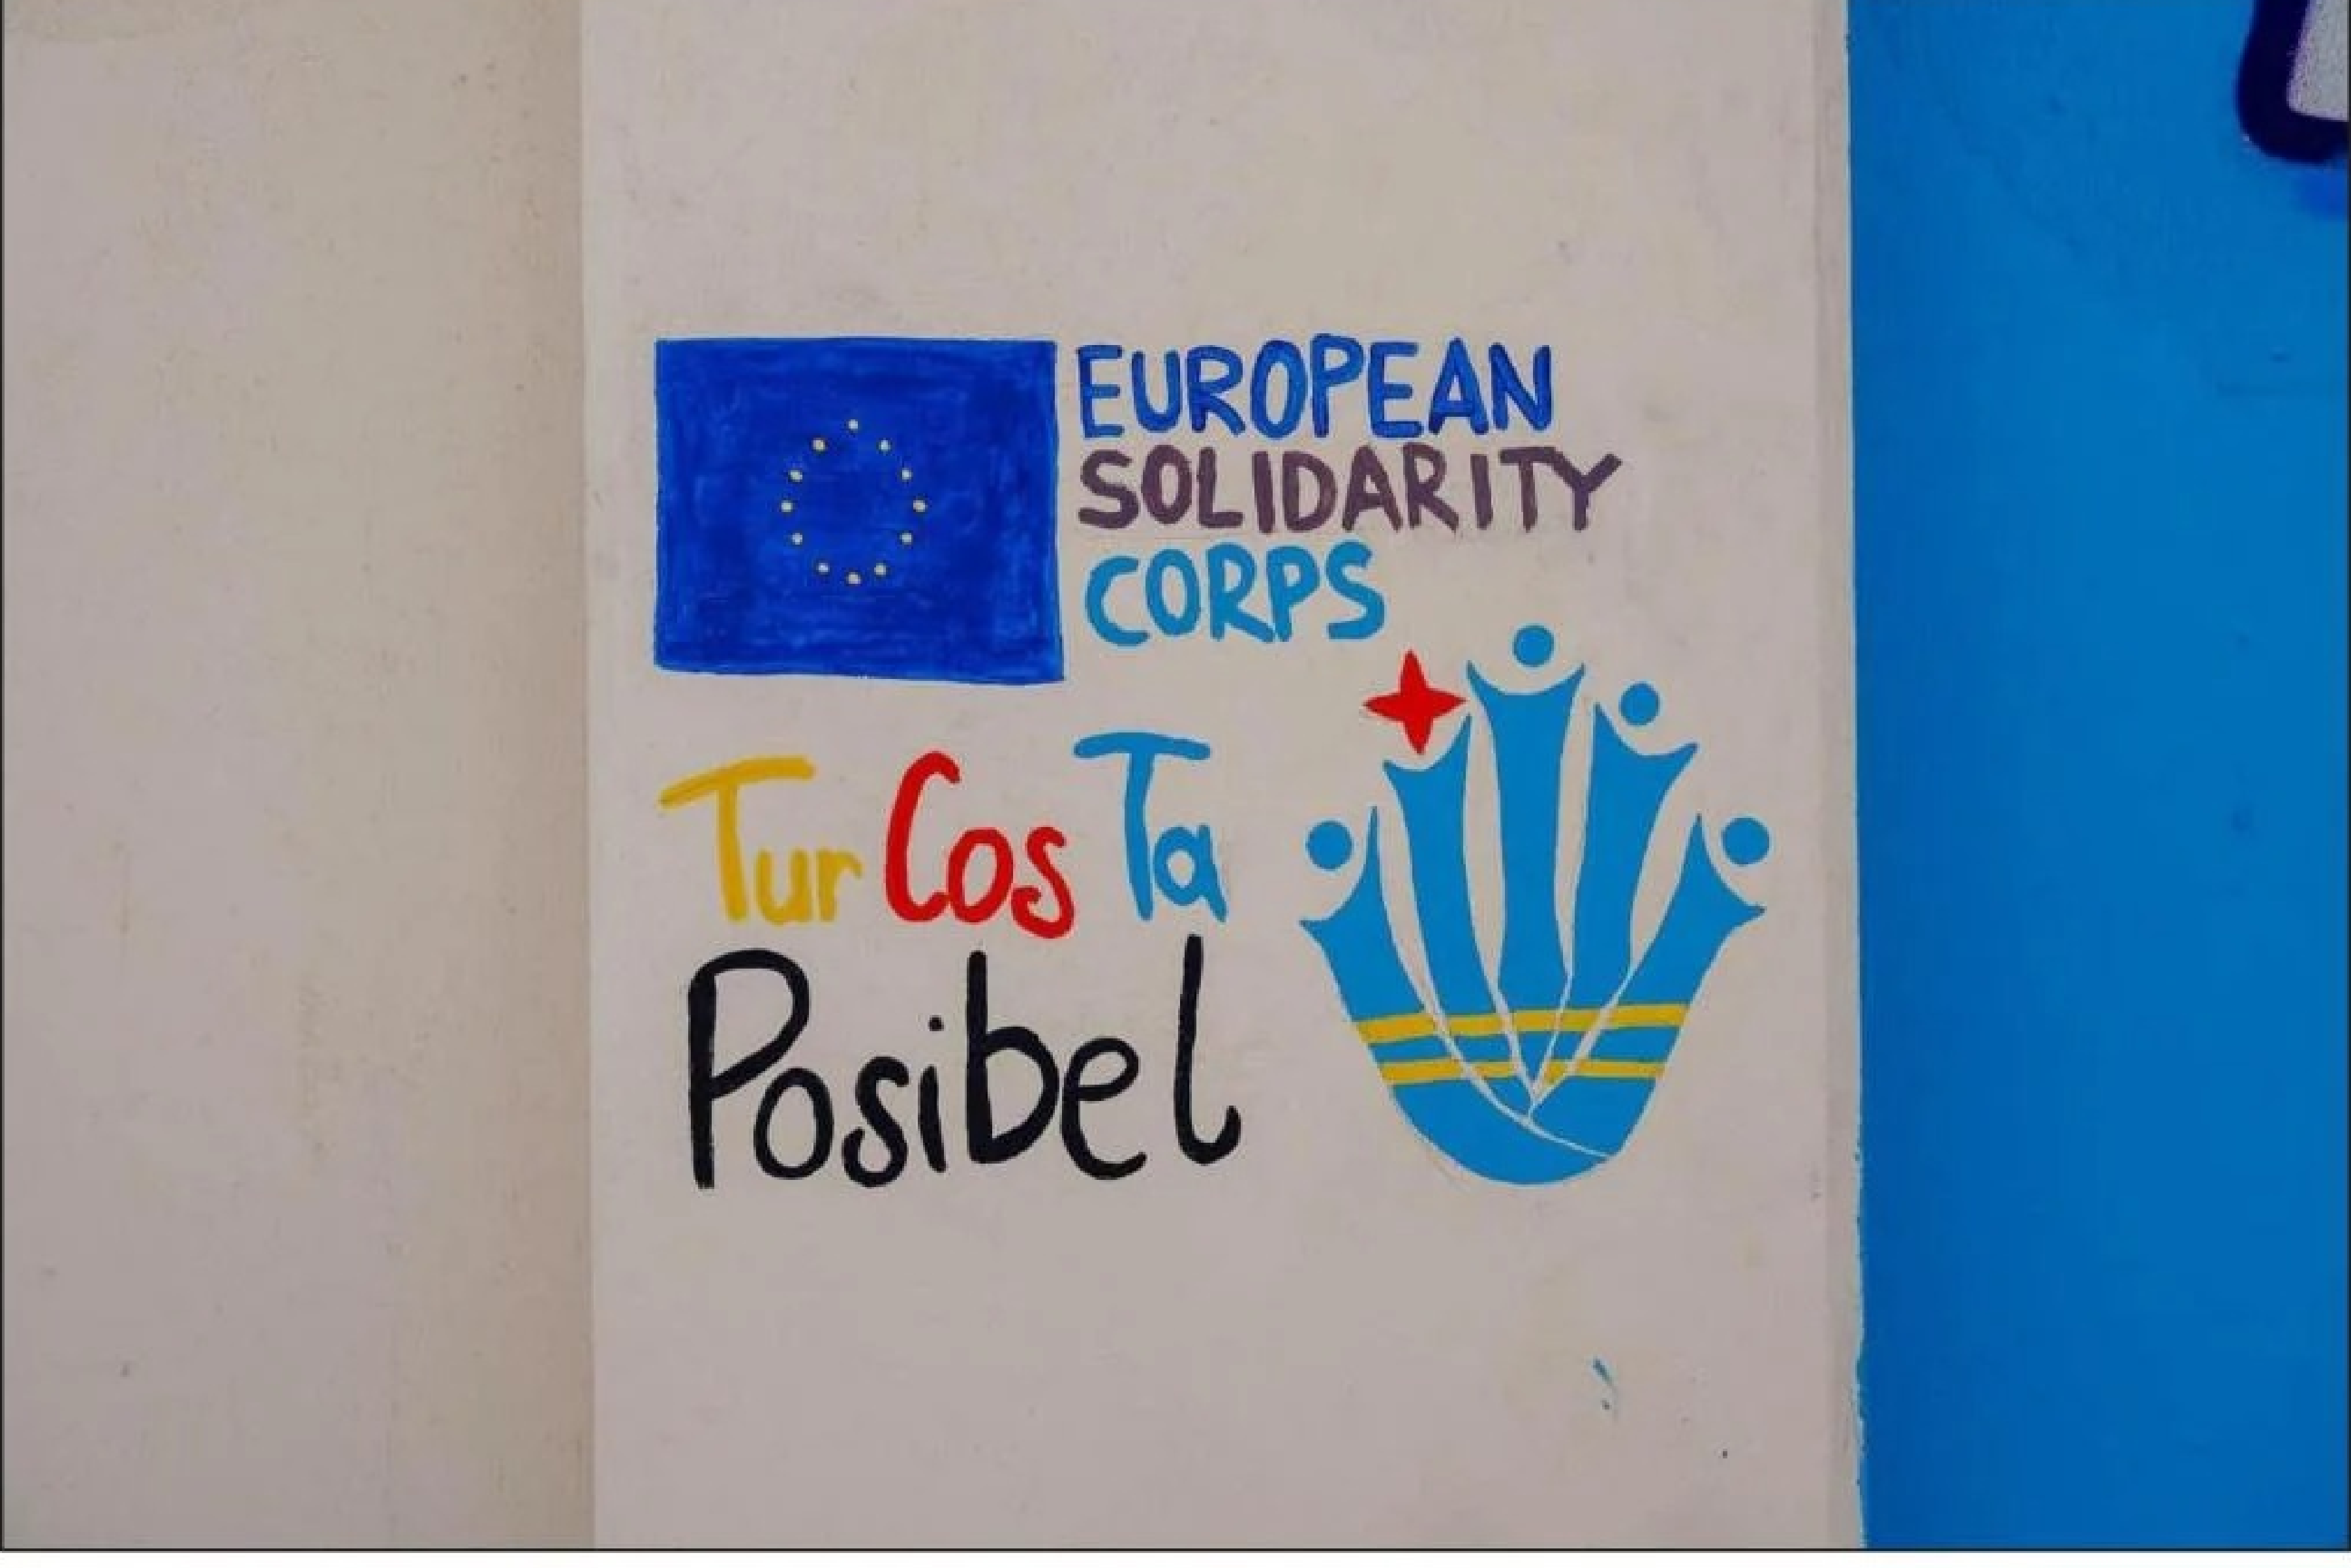 EUROPEAN
SOLIDARITY
CORPS
Tur Cos Ta
Posibel